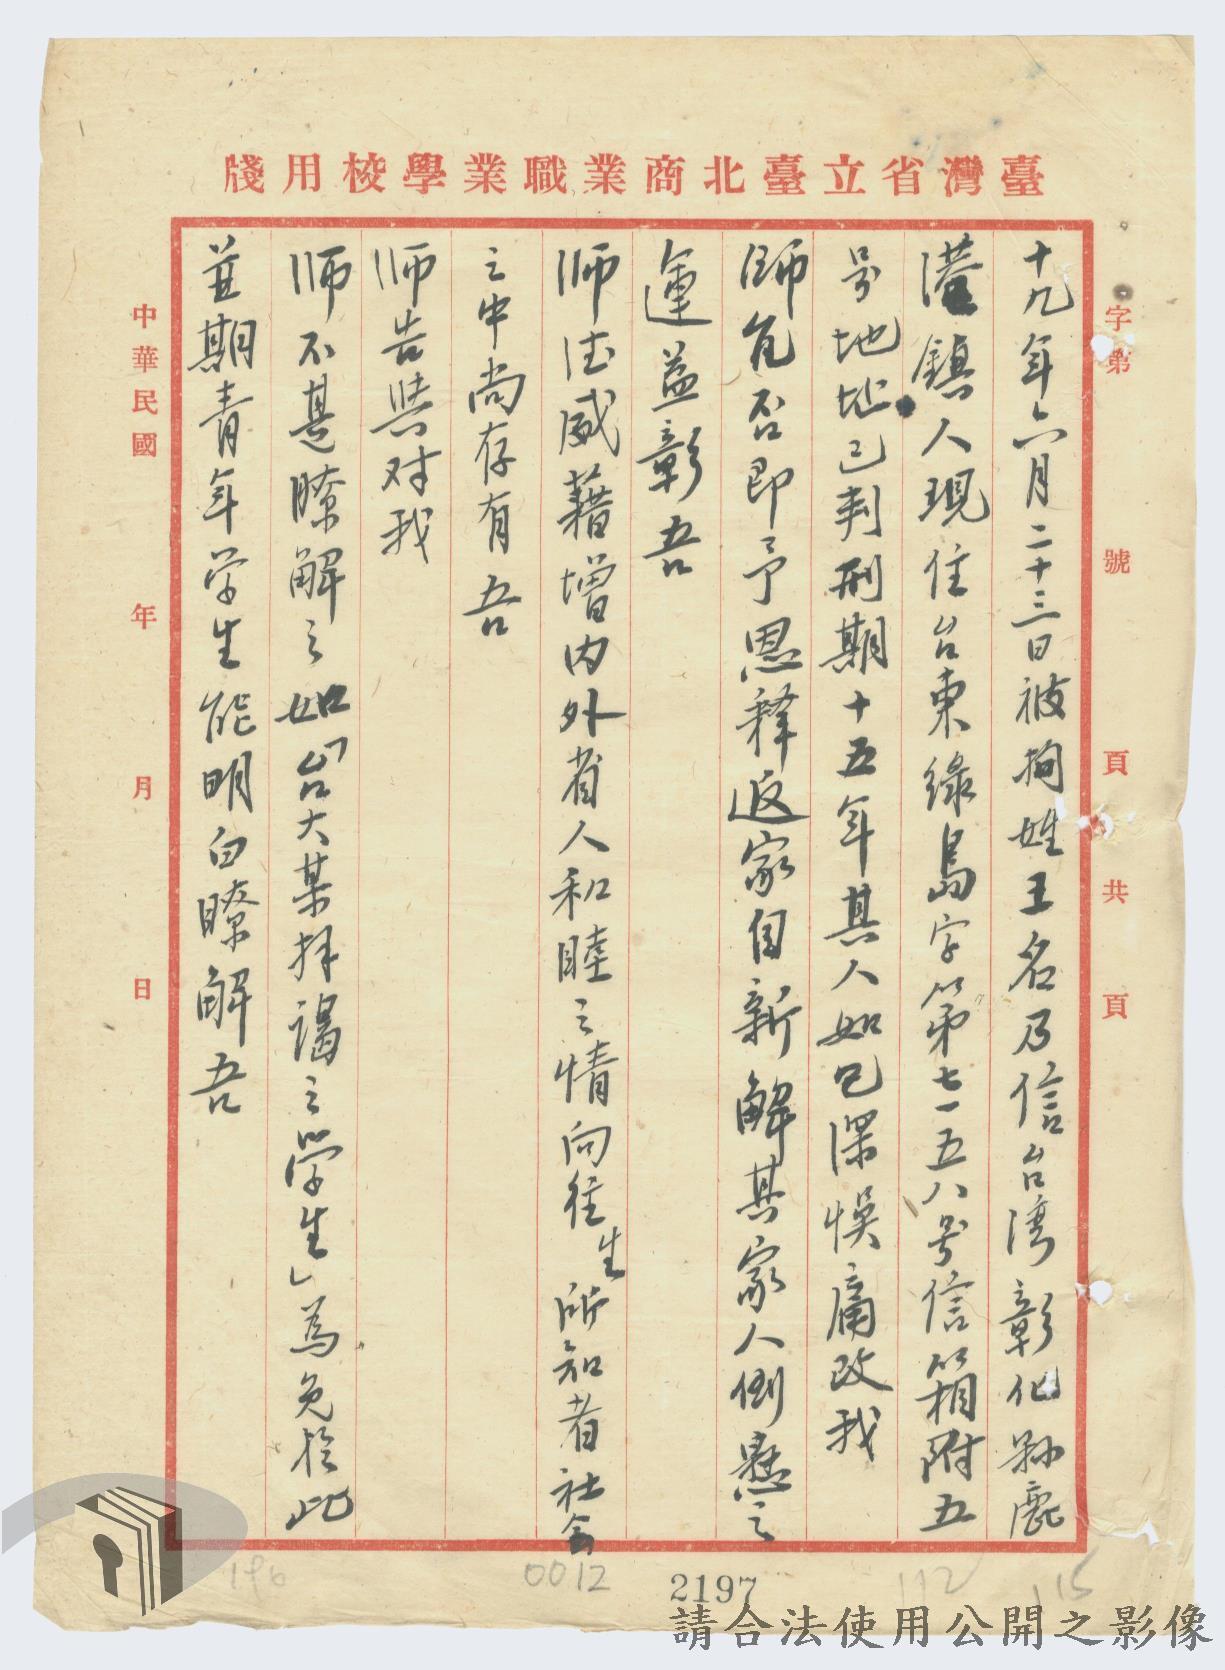 臺灣省立臺北商業職業學校用牋
字第　號　頁共　頁
十九年六月二十三日被拘姓王名乃信台湾彰化縣鹿
港鎮人現住台東綠島字第七一五八号信箱附五
号地址已判刑期十五年其人如已深悞痛改我
師允否即予恩释返家自新解其家人倒懸之
運益彰吾
师法威藉增内外省人和睦之情向往生所知者社会
之中尚存有吾
师告誉对我
师不甚瞭解之如「台大某拝謁之学生」為免於此
並期青年学生能明白瞭解吾
中華民國　年　月　日
196
0012
2197
112
115
請合法使用公開之影像